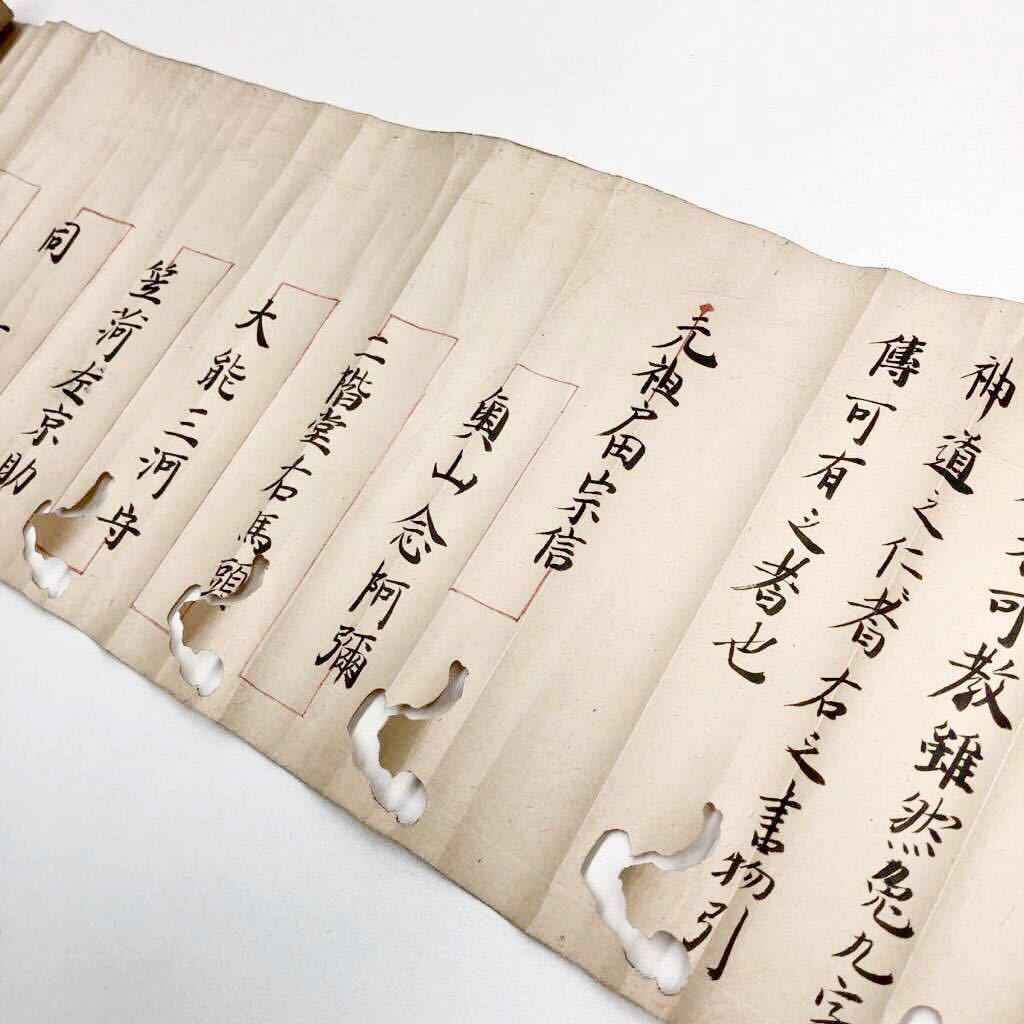 可教雖然兔九字
神道之仁者右之書物引
傳可有之者也
元祖戸田宗信
奥山念阿彌
二階堂右馬頭
大能三河守
笠荷左京助
同